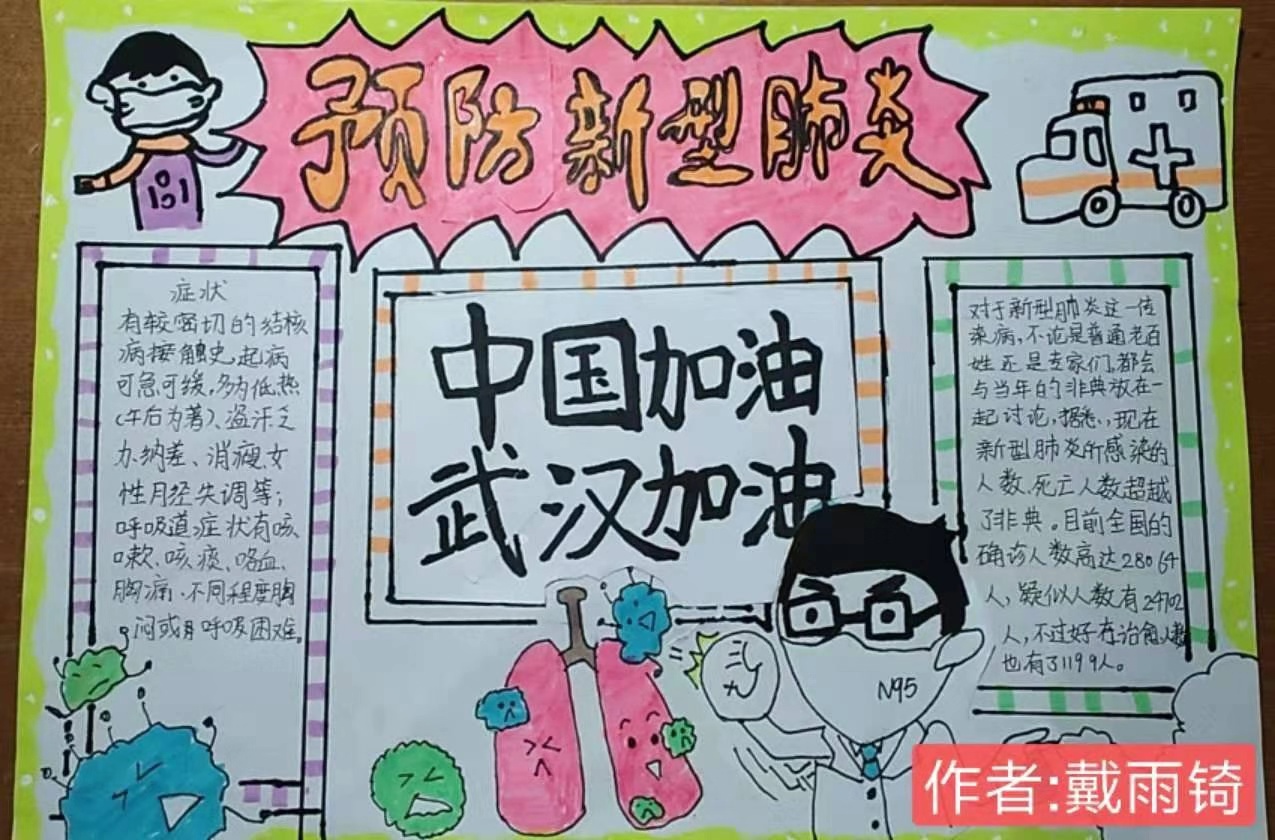 预防新型肺炎
症状
有较密切的结核
病接触史,起病
可急可缓,多为低热
(午后为著)、盗汗、乏
力、纳差、消瘦、女
性月经失调等;
呼吸道症状有咳
嗽、咳痰、咯血、
胸痛、不同程度胸
闷或 呼吸困难。
中国加油
武汉加油
对于新型肺炎这一传
染病,不论是普通老百
姓还是专家们,都会
与当年的非典放在一
起讨论,据悉,现在
新型肺炎所感染的
人数、死亡人数超越
了非典。目前全国的
确诊人数高达28064
人,疑似人数有24702
人,不过好在治愈人数
也有了1199人。
N95
作者:戴雨锜